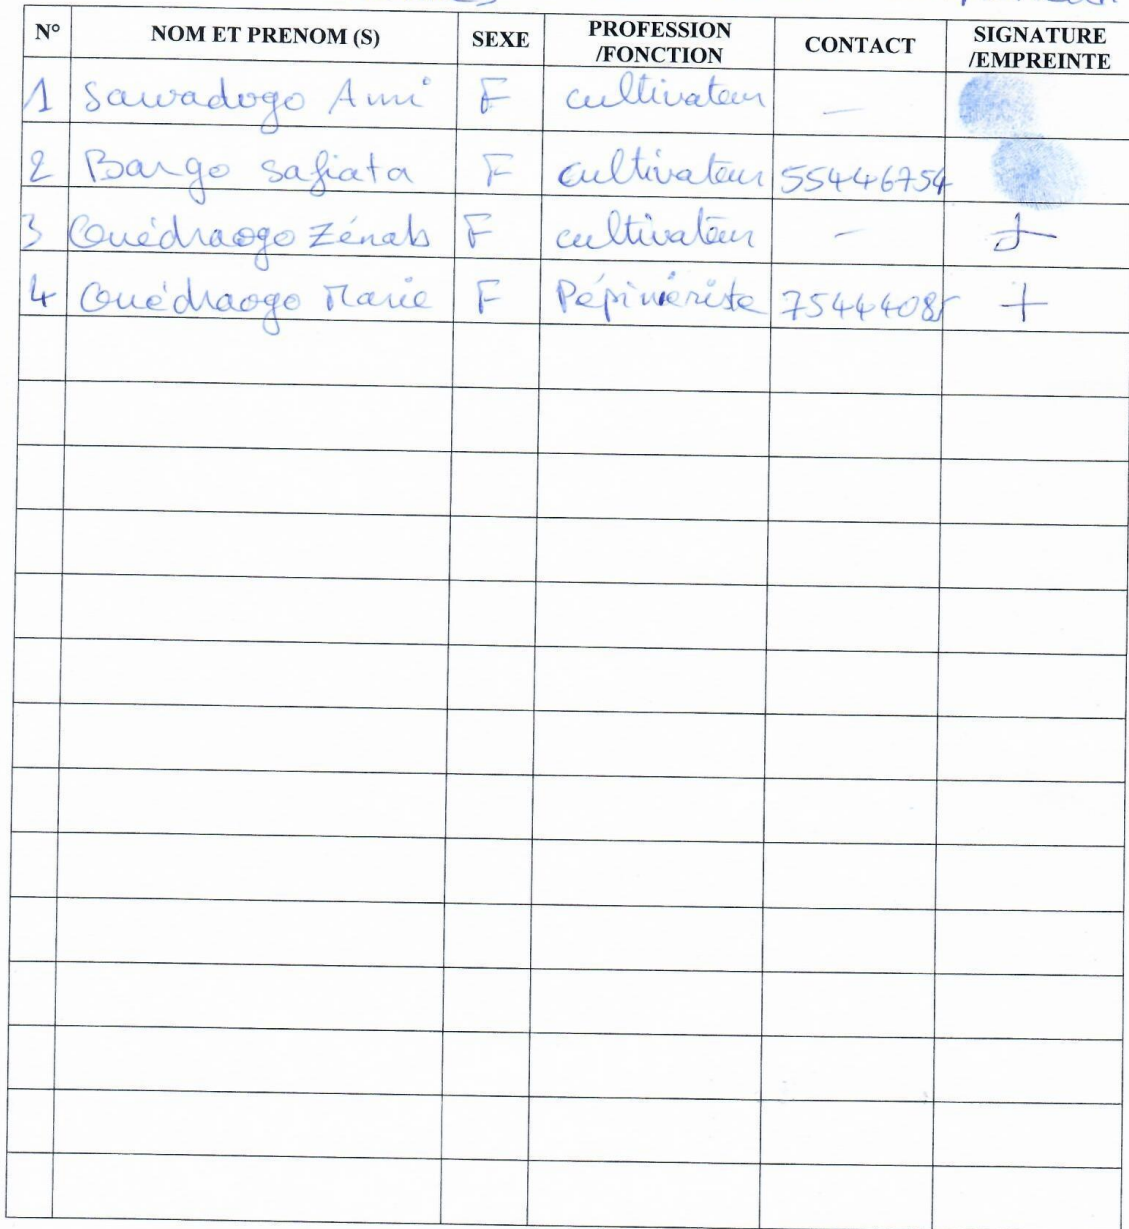 N° NOM ET PRENOM (S) SEXE PROFESSION /FONCTION CONTACT SIGNATURE /EMPREINTE
1 Sawadogo Ami F cultivateur -
2 Bango safiata F cultivateur 55446754
3 Ouédraogo Zénab F cultivateur - +
4 Ouédraogo Marie F Pépiniériste 75444085 +